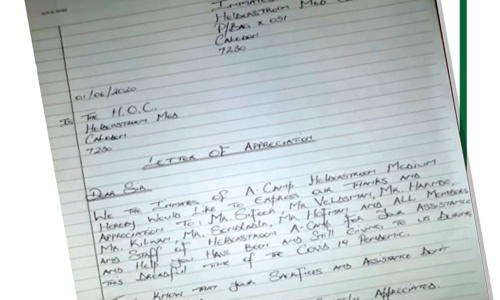 Inmates
Heldenstroom Med
P/Bag x 051
Caledon
7230
01/06/2020
To: The H.O.C.
Heldenstroom Med
Caledon
7230
Letter of Appreciation
Dear Sir
We The Inmates, of A-Camp Heldenstroom Medium
Hereby Would Like To Express Our Thanks and
Appreciation To, Mr. Veldsman, Mr.
Mr. Mr. Mr. and All Members
and Staff of Heldenstroom A-Camp For Your Assistance
and Help You Have Been and Still Giving To Us During
This Dreadful Time of The Covid 19 Pandemic.
Know That Your Sacrifices and Assistance Don't
Appreciated.